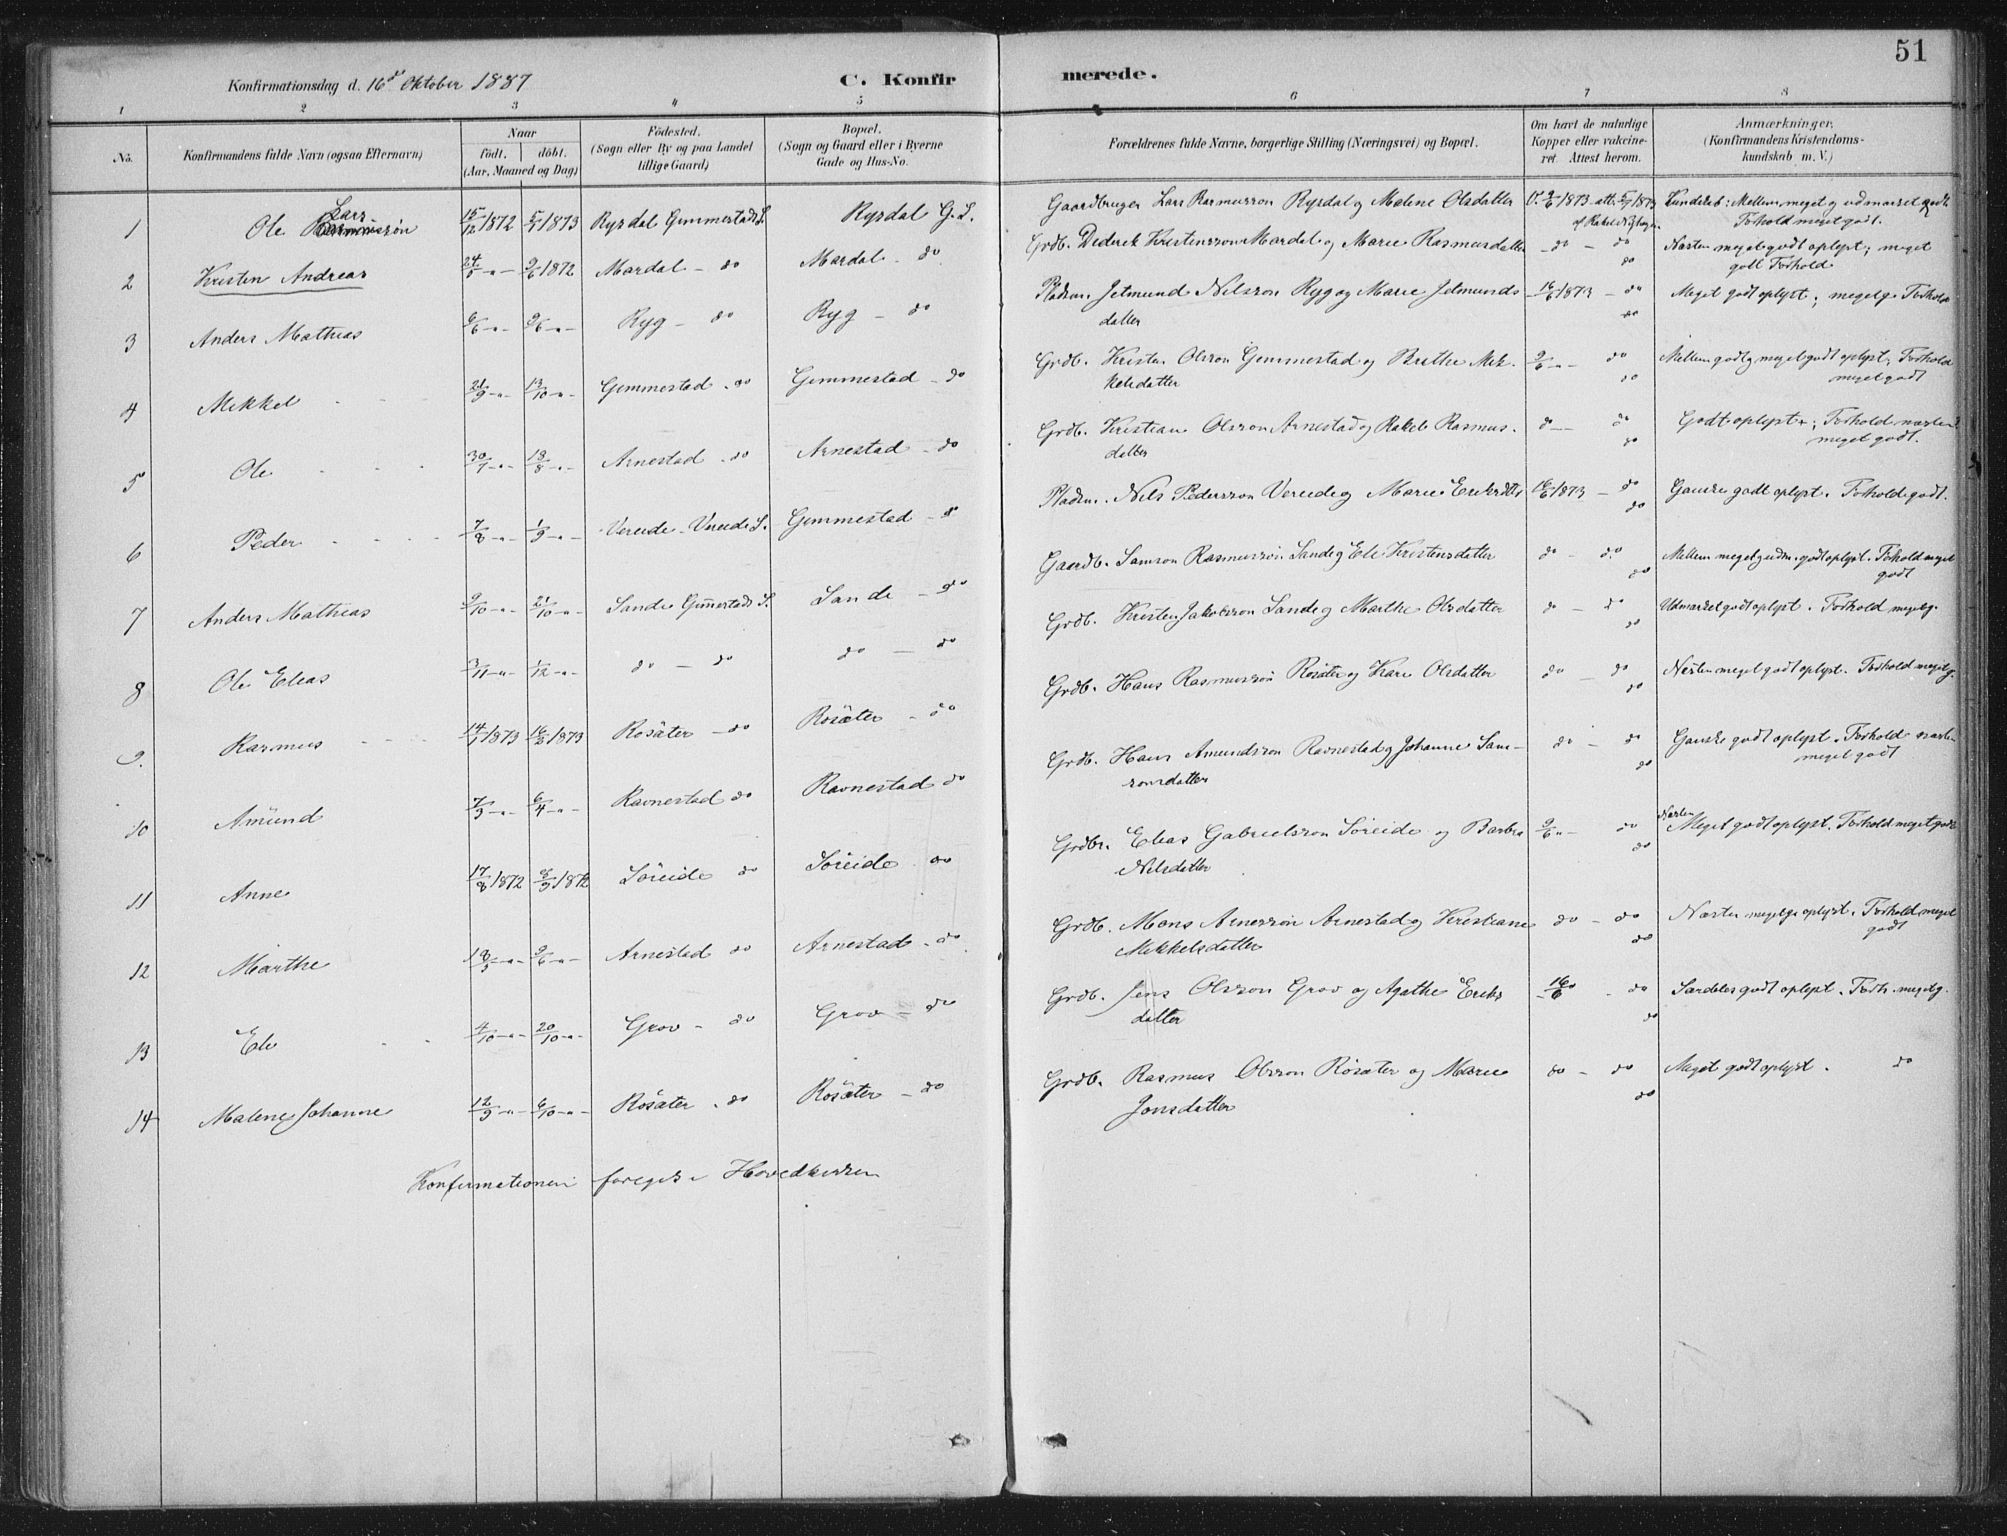 51
Konfirmationsdag d. 16de Oktober 1887
C. Konfirmerede.
1 2 3 4 5 6 7 8
No.
Konfirmandens fulde Navn (ogsaa Efternavn)
Naar
födt. döbt.
(Aar, Maaned og Dag)
Födested.
(Sogn eller By og paa Landet
tillige Gaard)
Bopæl.
(Sogn og Gaard eller i Byerne
Gade og Hus-No.
Forældrenes fulde Navne, borgerlige Stilling (Næringsvei) og Bopæl.
Om havt de naturlige
Kopper eller vakcine-
ret Attest herom.
Anmærkninger.
(Konfirmandens Kristendoms-
kundskab m. V.)
1 Ole Larssön 15/12 1872 5/1 1873 Rysdal Gimmestads S. Rysdal G. S. Gaardbruger Lars Rasmusson Rysdal og Malene Olsdatter V. 9/6 1873 att. 5/7 1873 Kundskab: Mellem meget og udmærket godt.
Forhold meget godt.
2 Kristen Andreas 24/5 -"- 9/6 1872 Mardal - do Mardal - do Grdb. Diderik Kristensson Mardal og Marie Rasmusdatter - do - do Næsten meget godt oplyst; meget
do godt Forhold
3 Anders Mathias 6/6 -"- 9/6 -"- Ryg - do Ryg - do Pladsm. Jetmund Nilsson Ryg og Marie Jetmunds 16/6 1873 - do Meget godt oplyst; meget g. Forhold
datter do
4 Mekkel 21/9 -"- 13/10 -"- Gimmestad - do Gimmestad - do Grdb. Kristen Olsson Gimmestad og Brithe Mik- 9/6 -"- do Mellem godt og meget godt oplyst; Forhold
kelsdatter do meget godt
5 Ole 30/7 -"- 18/8 -"- Arnestad - do Arnestad - do Grdb. Kristian Olsson Arnestad og Rakel Rasmus- do - do Godt oplyst; Forhold næsten
datter do meget godt.
6 Peder 7/8 -"- 1/9 -"- Vereide - Vereide S. Gimmestad - S Pladsm. Nils Pedersson Vereide og Marie Eriksdtr 16/6 1873 - do Ganske godt oplyst. Forhold godt.
do
7 Anders Mathias 9/10 -"- 21/10 -"- Sande Gimmestads S. Sande - do Gaardb. Samson Rasmussön Sande og Eli Kristensdatter do - do Mellem meget og udm. godt oplyst. Forhold meget
do godt
8 Ole Elias 3/11 -"- 1/12 -"- do - do do - do Grdb. Kristen Jakobsson Sande og Marthe Olsdatter do - do Udmærket godt oplyst. Forhold meget g.
do
9. Rasmus 14/1 1873 16/2 1873 Rosäter - do Rosæter - do Grdb. Hans Rasmussön Rosæter og Kari Olsdatter do - do Næsten meget godt oplyst. Forhold meget g.
do
10 Amund 7/3 -"- 6/4 -"- Ravnestad do Ravnestad do Grdb. Hans Amundsson Ravnestad og Johanne Sam- do - do Ganske godt oplyst. Forhold næsten
sonsdatter do meget godt
11 Anne 17/8 1872 8/9 1872 Söreide do Söreide do Grdbr. Elias Gabrielsson Söreide og Barbra 9/6 "- do Næsten Meget godt oplyst. Forhold meget godt
Nilsdatter do
12 Marthe 18/5 -"- 9/6 -"- Arnestad do Arnestad - do Grdb. Mons Arnessön Arnestad og Kristiane do - do Næsten meget g. oplyst. Forhold meget
Mekkelsdatter do godt
13 Eli 4/10 -"- 20/10 -"- Grov - do Grov - do Grdb. Jens Olsson Grov og Agathe Eriks 16/6 - do Særdeles godt oplyst. Forh. meget g.
datter do
14 Malene Johanne 12/9 -"- 6/10 -"- Rosäter - do Rosäter - do Grdb. Rasmus Olsson Rosæter og Marie do - do Meget godt oplyst. do
Jonsdatter do
Konfirmationen foregik i Hovedkirken